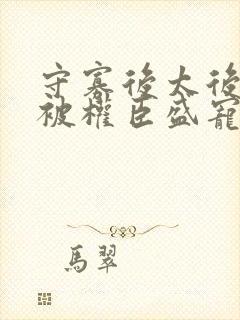 守寡後太後
被權臣盛寵
馬翠